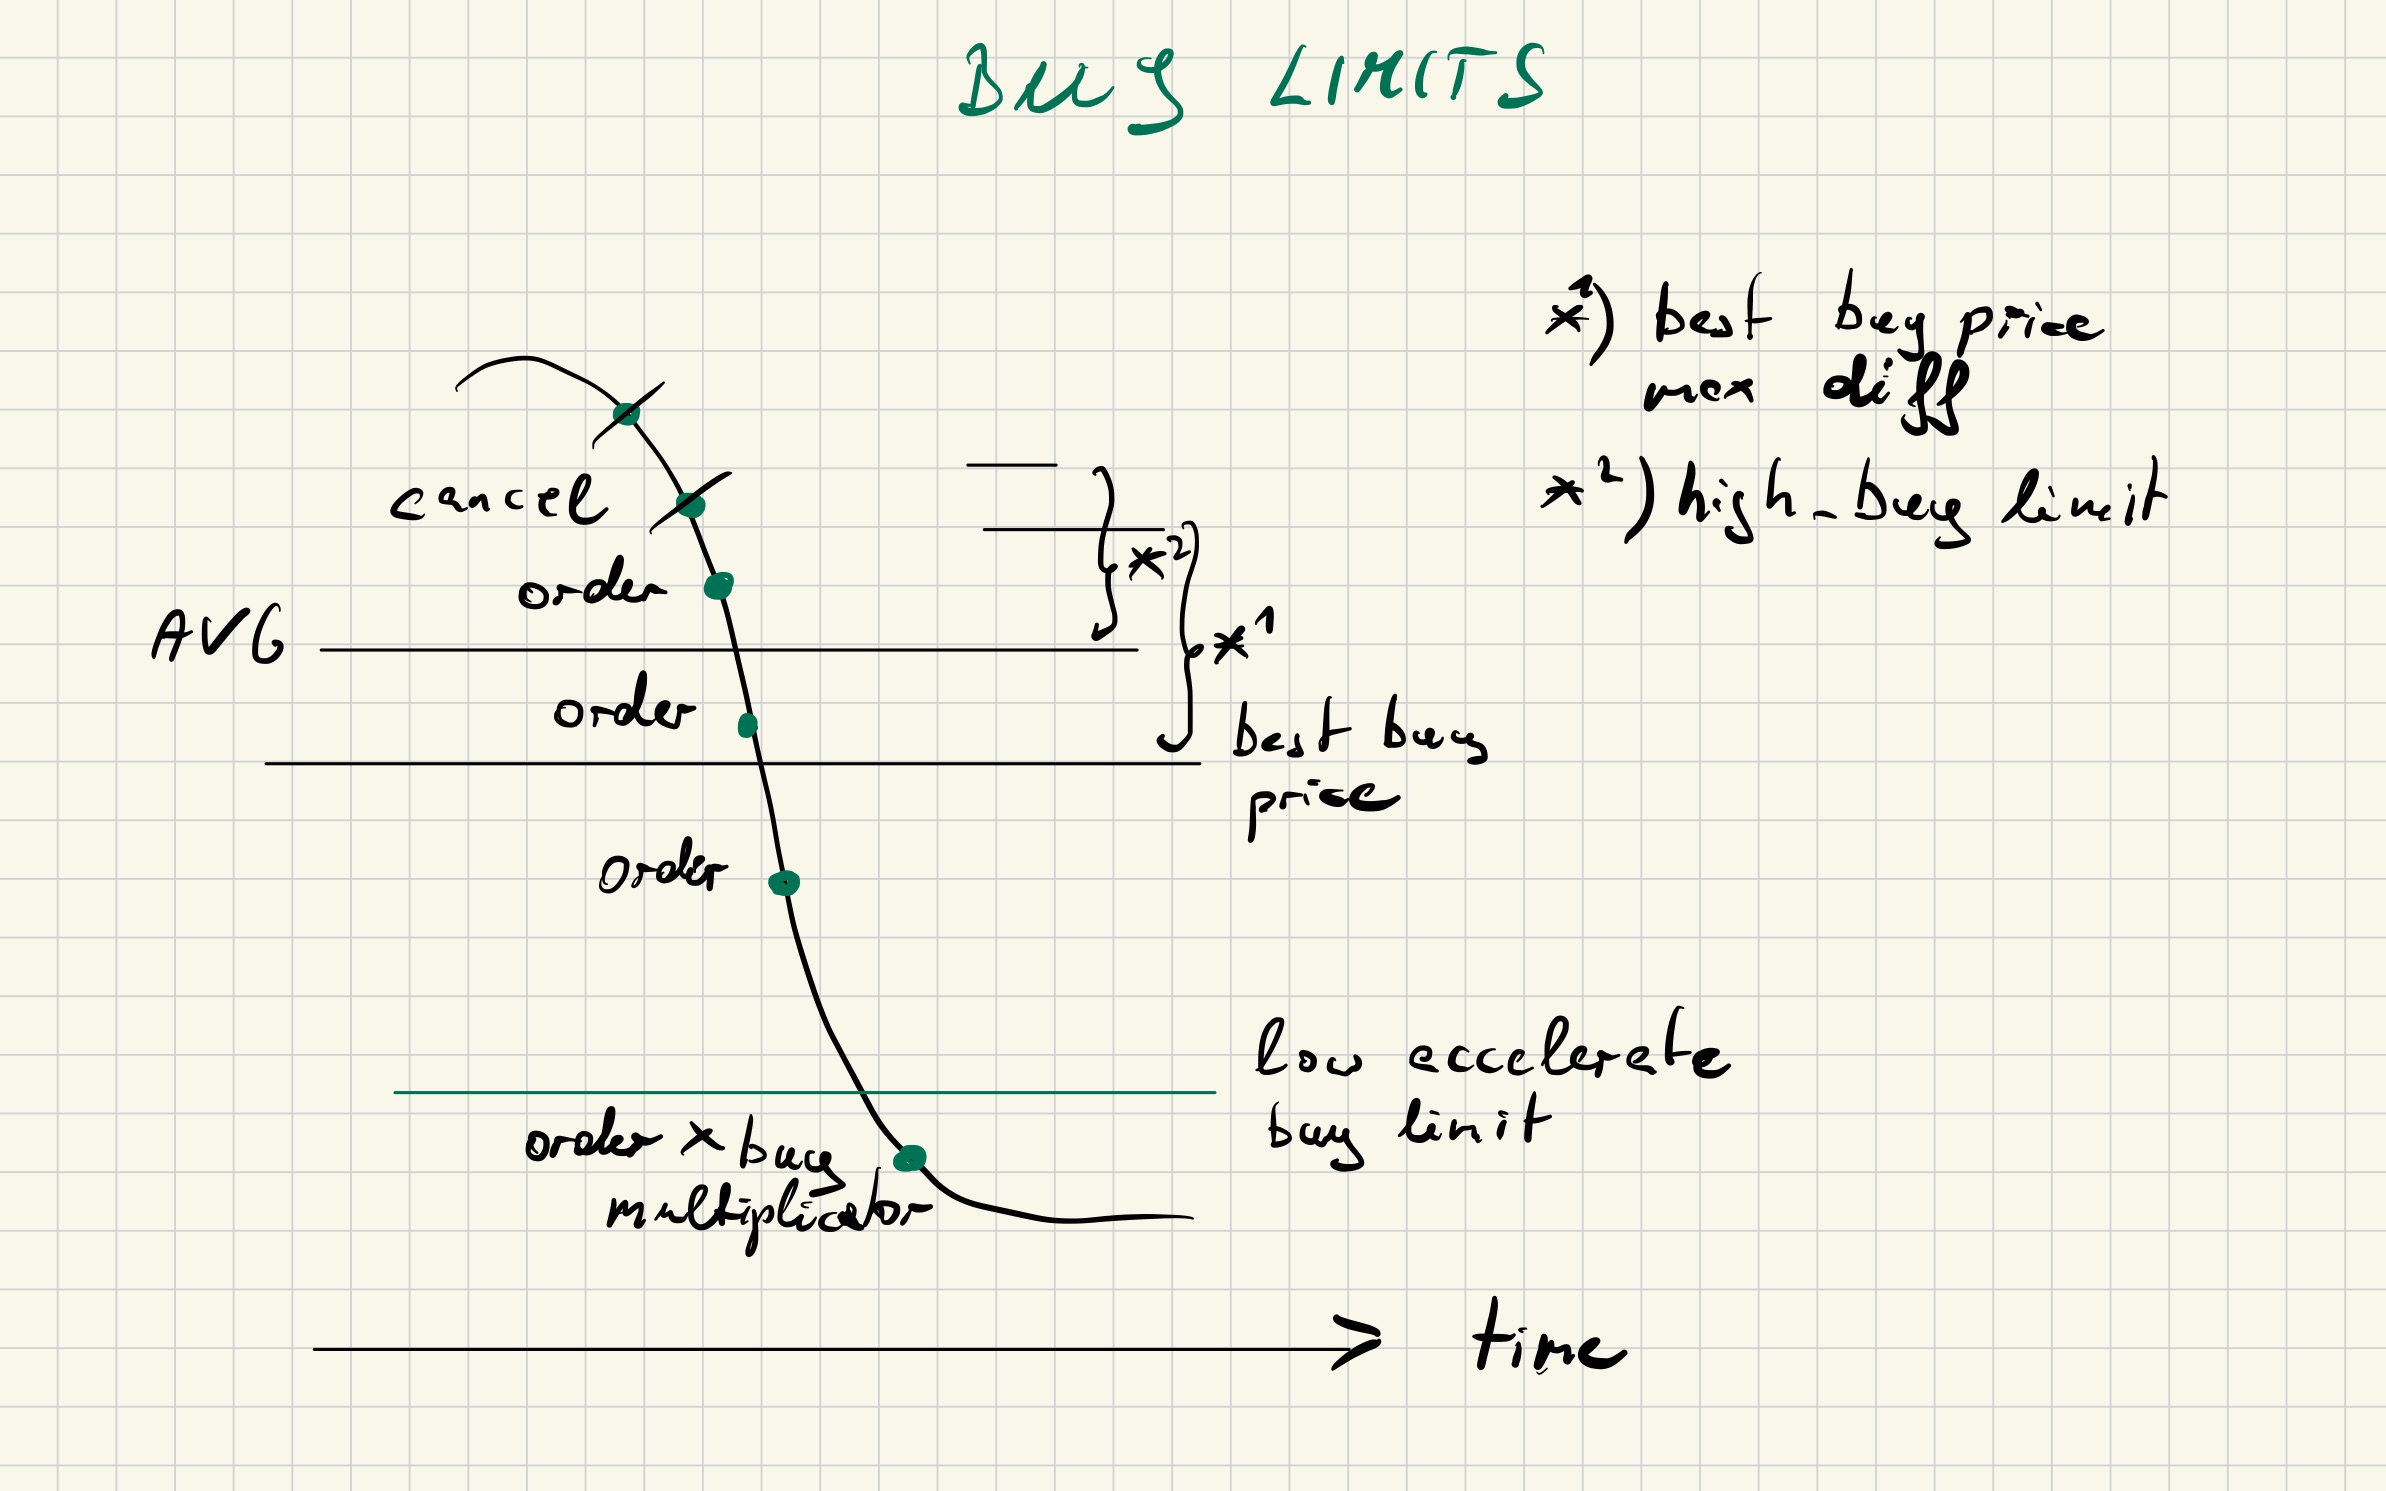 Buy LIMITS
*1) best buy price
max diff
*2) high-buy limit
cancel
order
*2)
AVG
*1
order
best buy
price
order
low accelerate
buy limit
order x buy
multiplicator
time